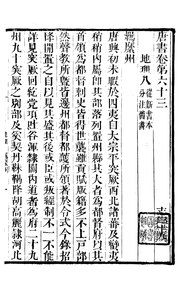 唐書卷第六十三
地理八 從新書本
分注舊書
羈縻州
唐興初未暇於四夷自太宗平突厥西北諸蕃及蠻夷
稍稍內屬即其部落列置州縣其大者為都督府以其
首領為都督刺史皆得世襲雖貢賦版籍多不上戶部
然聲教所暨皆邊州都督都護所領著於令式今錄招
降開置之目以見其盛其後或臣或叛經制不一不能
詳見突厥回紇党項吐谷渾隸關內道者為府二十九
州九十突厥之別部及奚契丹靺鞨降胡高麗隸河